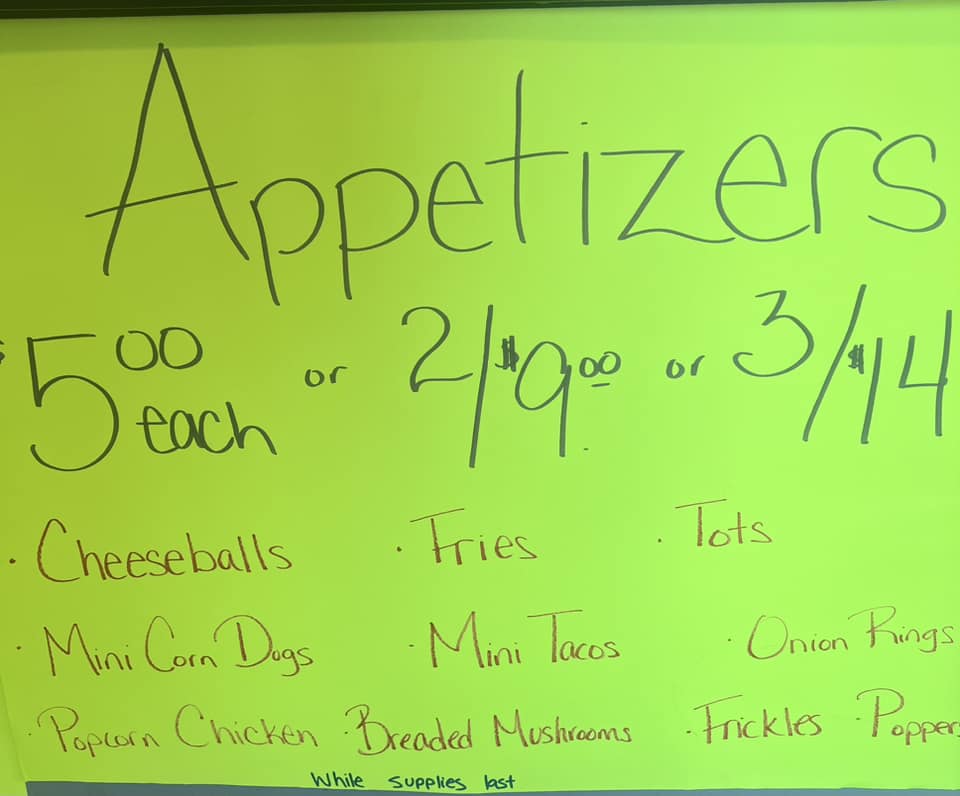 Appetizers
$5.00 each or 2/$9.00 or 3/$14
· Cheeseballs · Fries · Tots
· Mini Corn Dogs · Mini Tacos · Onion Rings
· Popcorn Chicken · Breaded Mushrooms · Frickles · Poppers
While supplies last